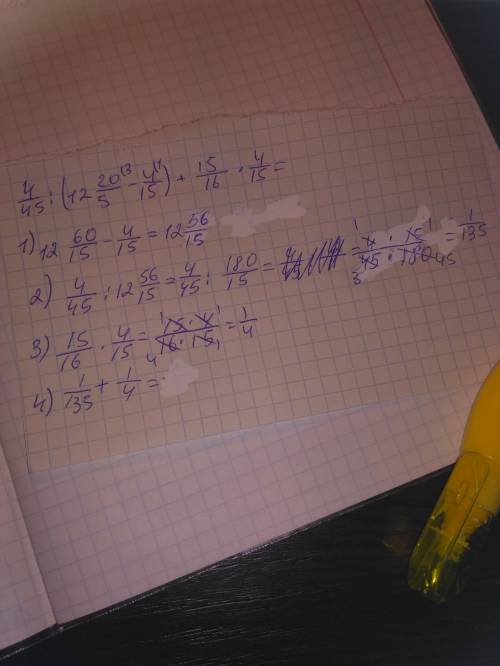 4/45 : (12 20/5 ¹³ - 4/15 ¹¹) + 15/16 · 4/15 =
1) 12 60/15 - 4/15 = 12 56/15
2) 4/45 : 12 56/15 = 4/45 : 180/15 = = ¹4 · 15¹ / ₃45 · 180 45 = 1/135
3) 15/16 · 4/15 = ¹15 · 4¹ / ₄16 · 15₁ = 1/4
4) 1/135 + 1/4 =